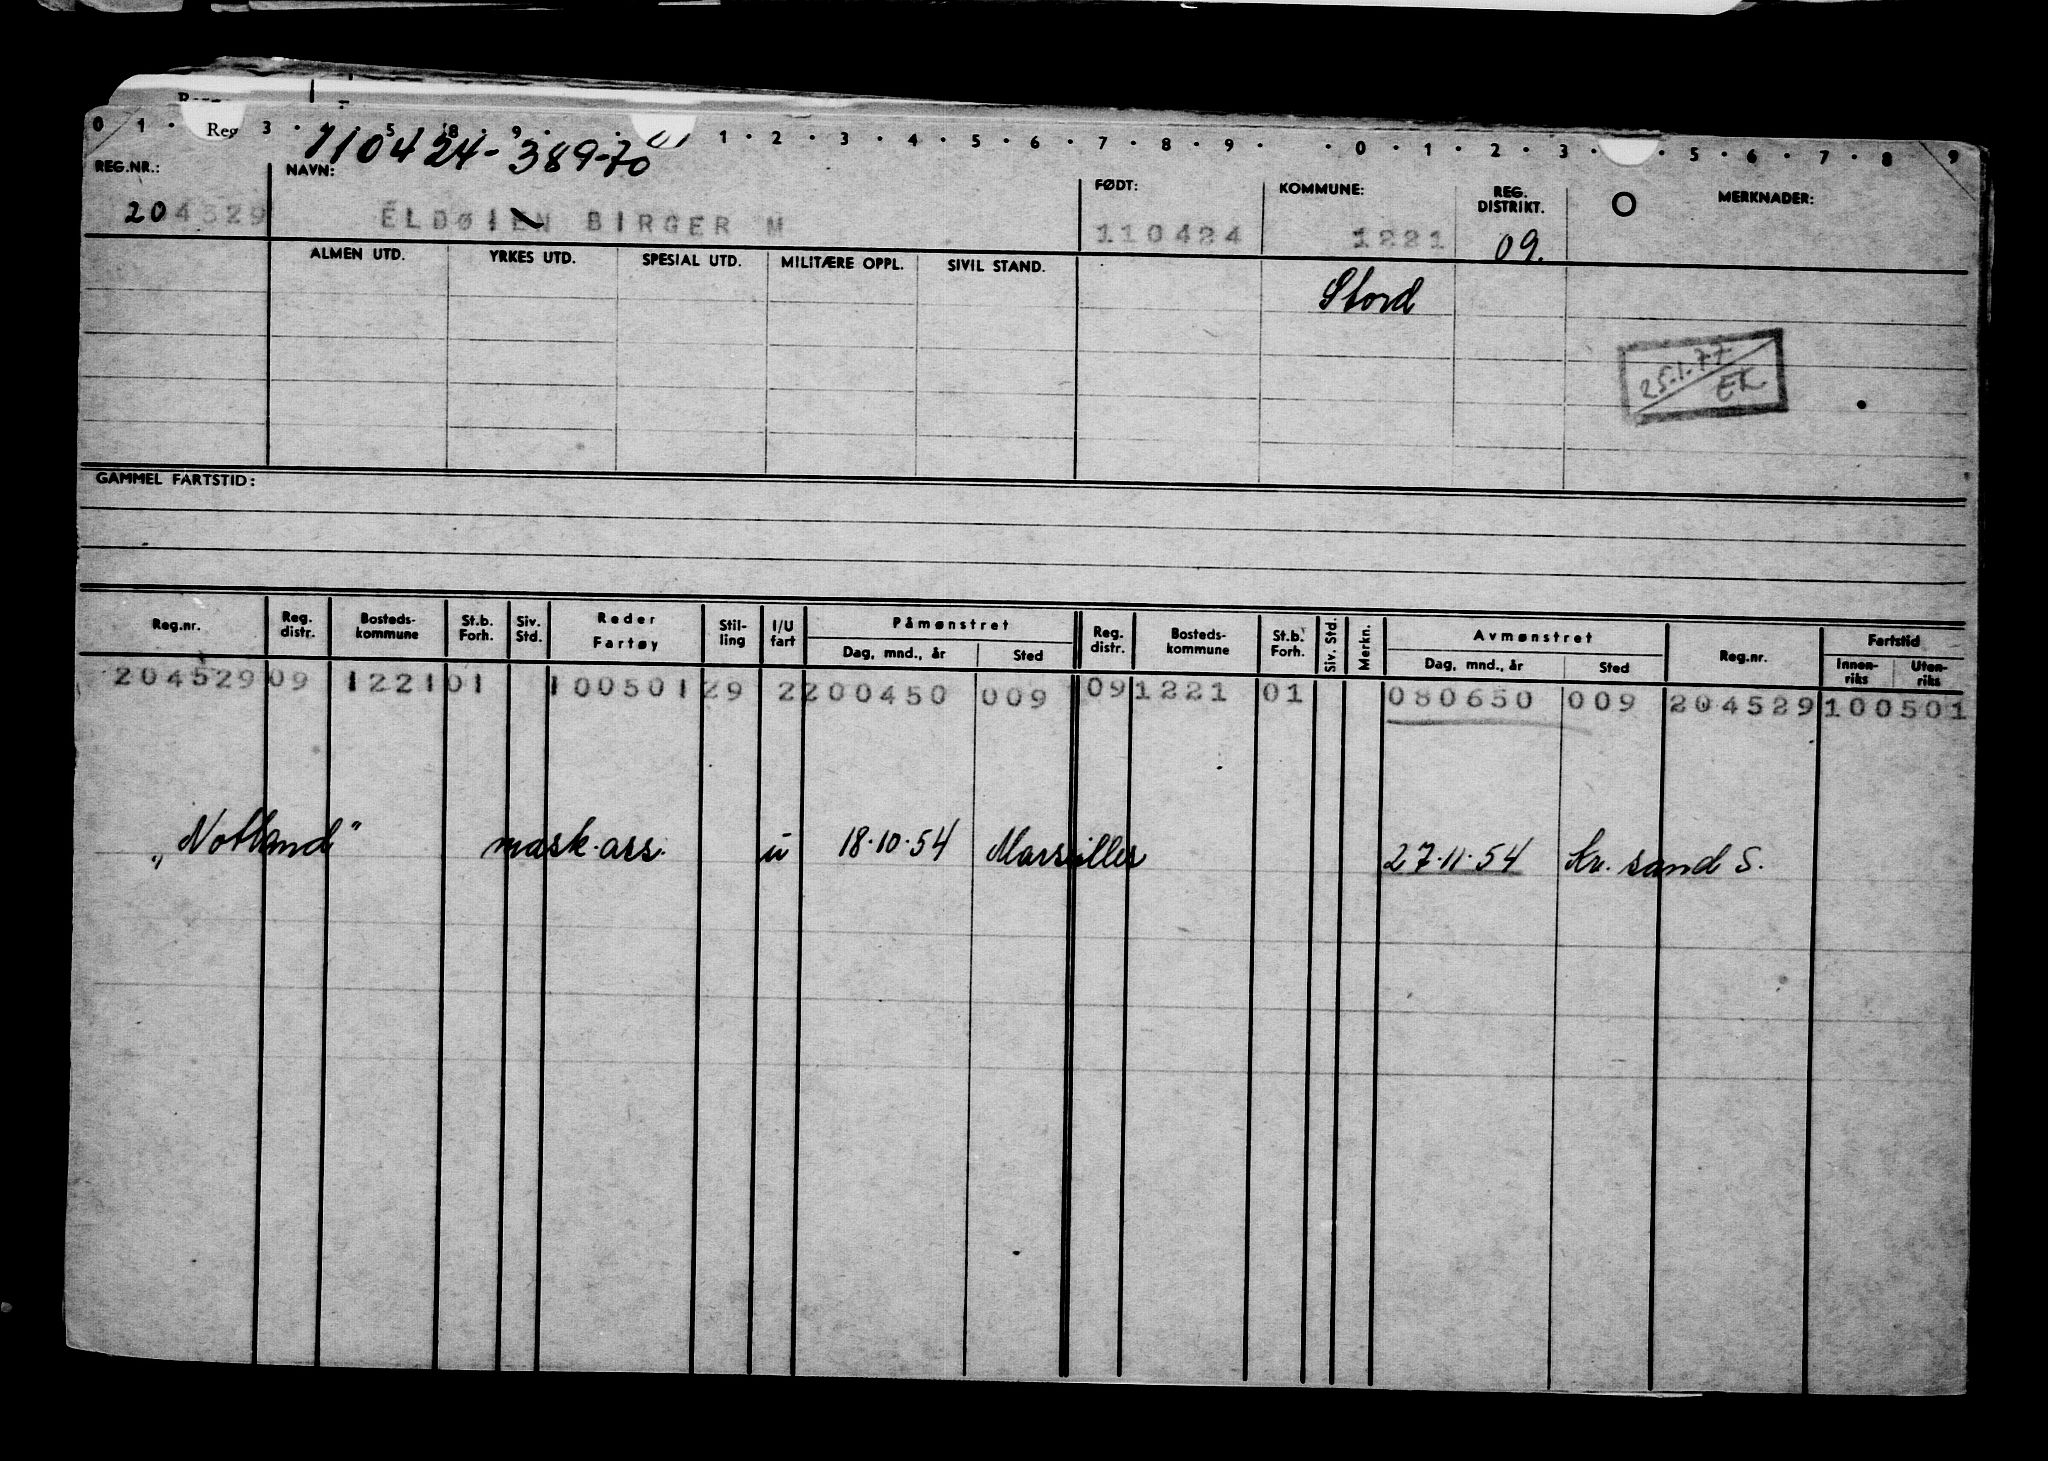 0 1 · Reg 3 · 5 8 · 9 · · 1 · 2 · 3 · 4 · 5 · 6 · 7 · 8 · 9 · · 0 · 1 · 2 · 3 · · 5 · 6 · 7 · 8 · 9
110424-389-70
REG.NR.: NAVN: FØDT: KOMMUNE: REG. DISTRIKT. O MERKNADER:
204529 ELDØIEN BIRGER M 110424 1221 09.
ALMEN UTD. YRKES UTD. SPESIAL UTD. MILITÆRE OPPL. SIVIL STAND.
Stord
25.1.77
EK.
GAMMEL FARTSTID:
Reg.nr. Reg. distr. Bosteds-kommune St.b. Forh. Siv. Std. Reder Fartøy Stil-ling I/U fart Påmønstret Dag, mnd., år Sted Reg. distr. Bosteds-kommune St.b. Forh. Siv. Std. Merkn. Avmønstret Dag, mnd., år Sted Reg.nr. Fartstid Innen-riks Uten-riks
204529 09 1221 01 100501 29 2 200450 009 09 1221 01 080650 009 204529 100501
„Notland" mask.ass. u 18.10.54 Marseilles 27.11.54 Kr. sand S.